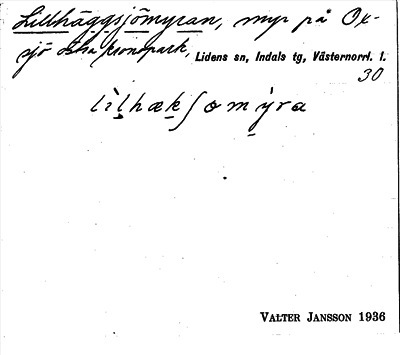 Lillhäggsjömyran, myr på Ox-
sjö östra kronopark, Lidens sn, Indals tg, Västernorrl. l.
30
lìlhækʃomỳra
VALTER JANSSON 1936